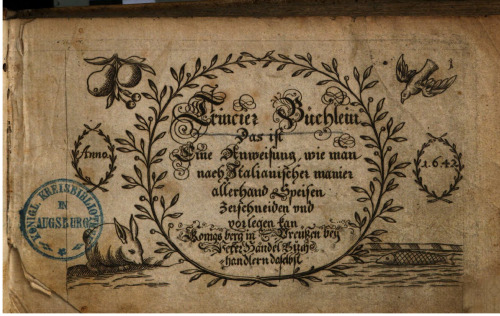 1
Trincier Büchlein
Das ist
Eine Anweisung, wie man
nach Italianischer manier
allerhand Speisen
Zerschneiden vnd
vorlegen kan
Königsberg in Preußen bey
Peter Händel Buch
handlern daselbst
Anno
1642
KÖNIGL. KREISBIBLIOTHEK
IN
AUGSBURG